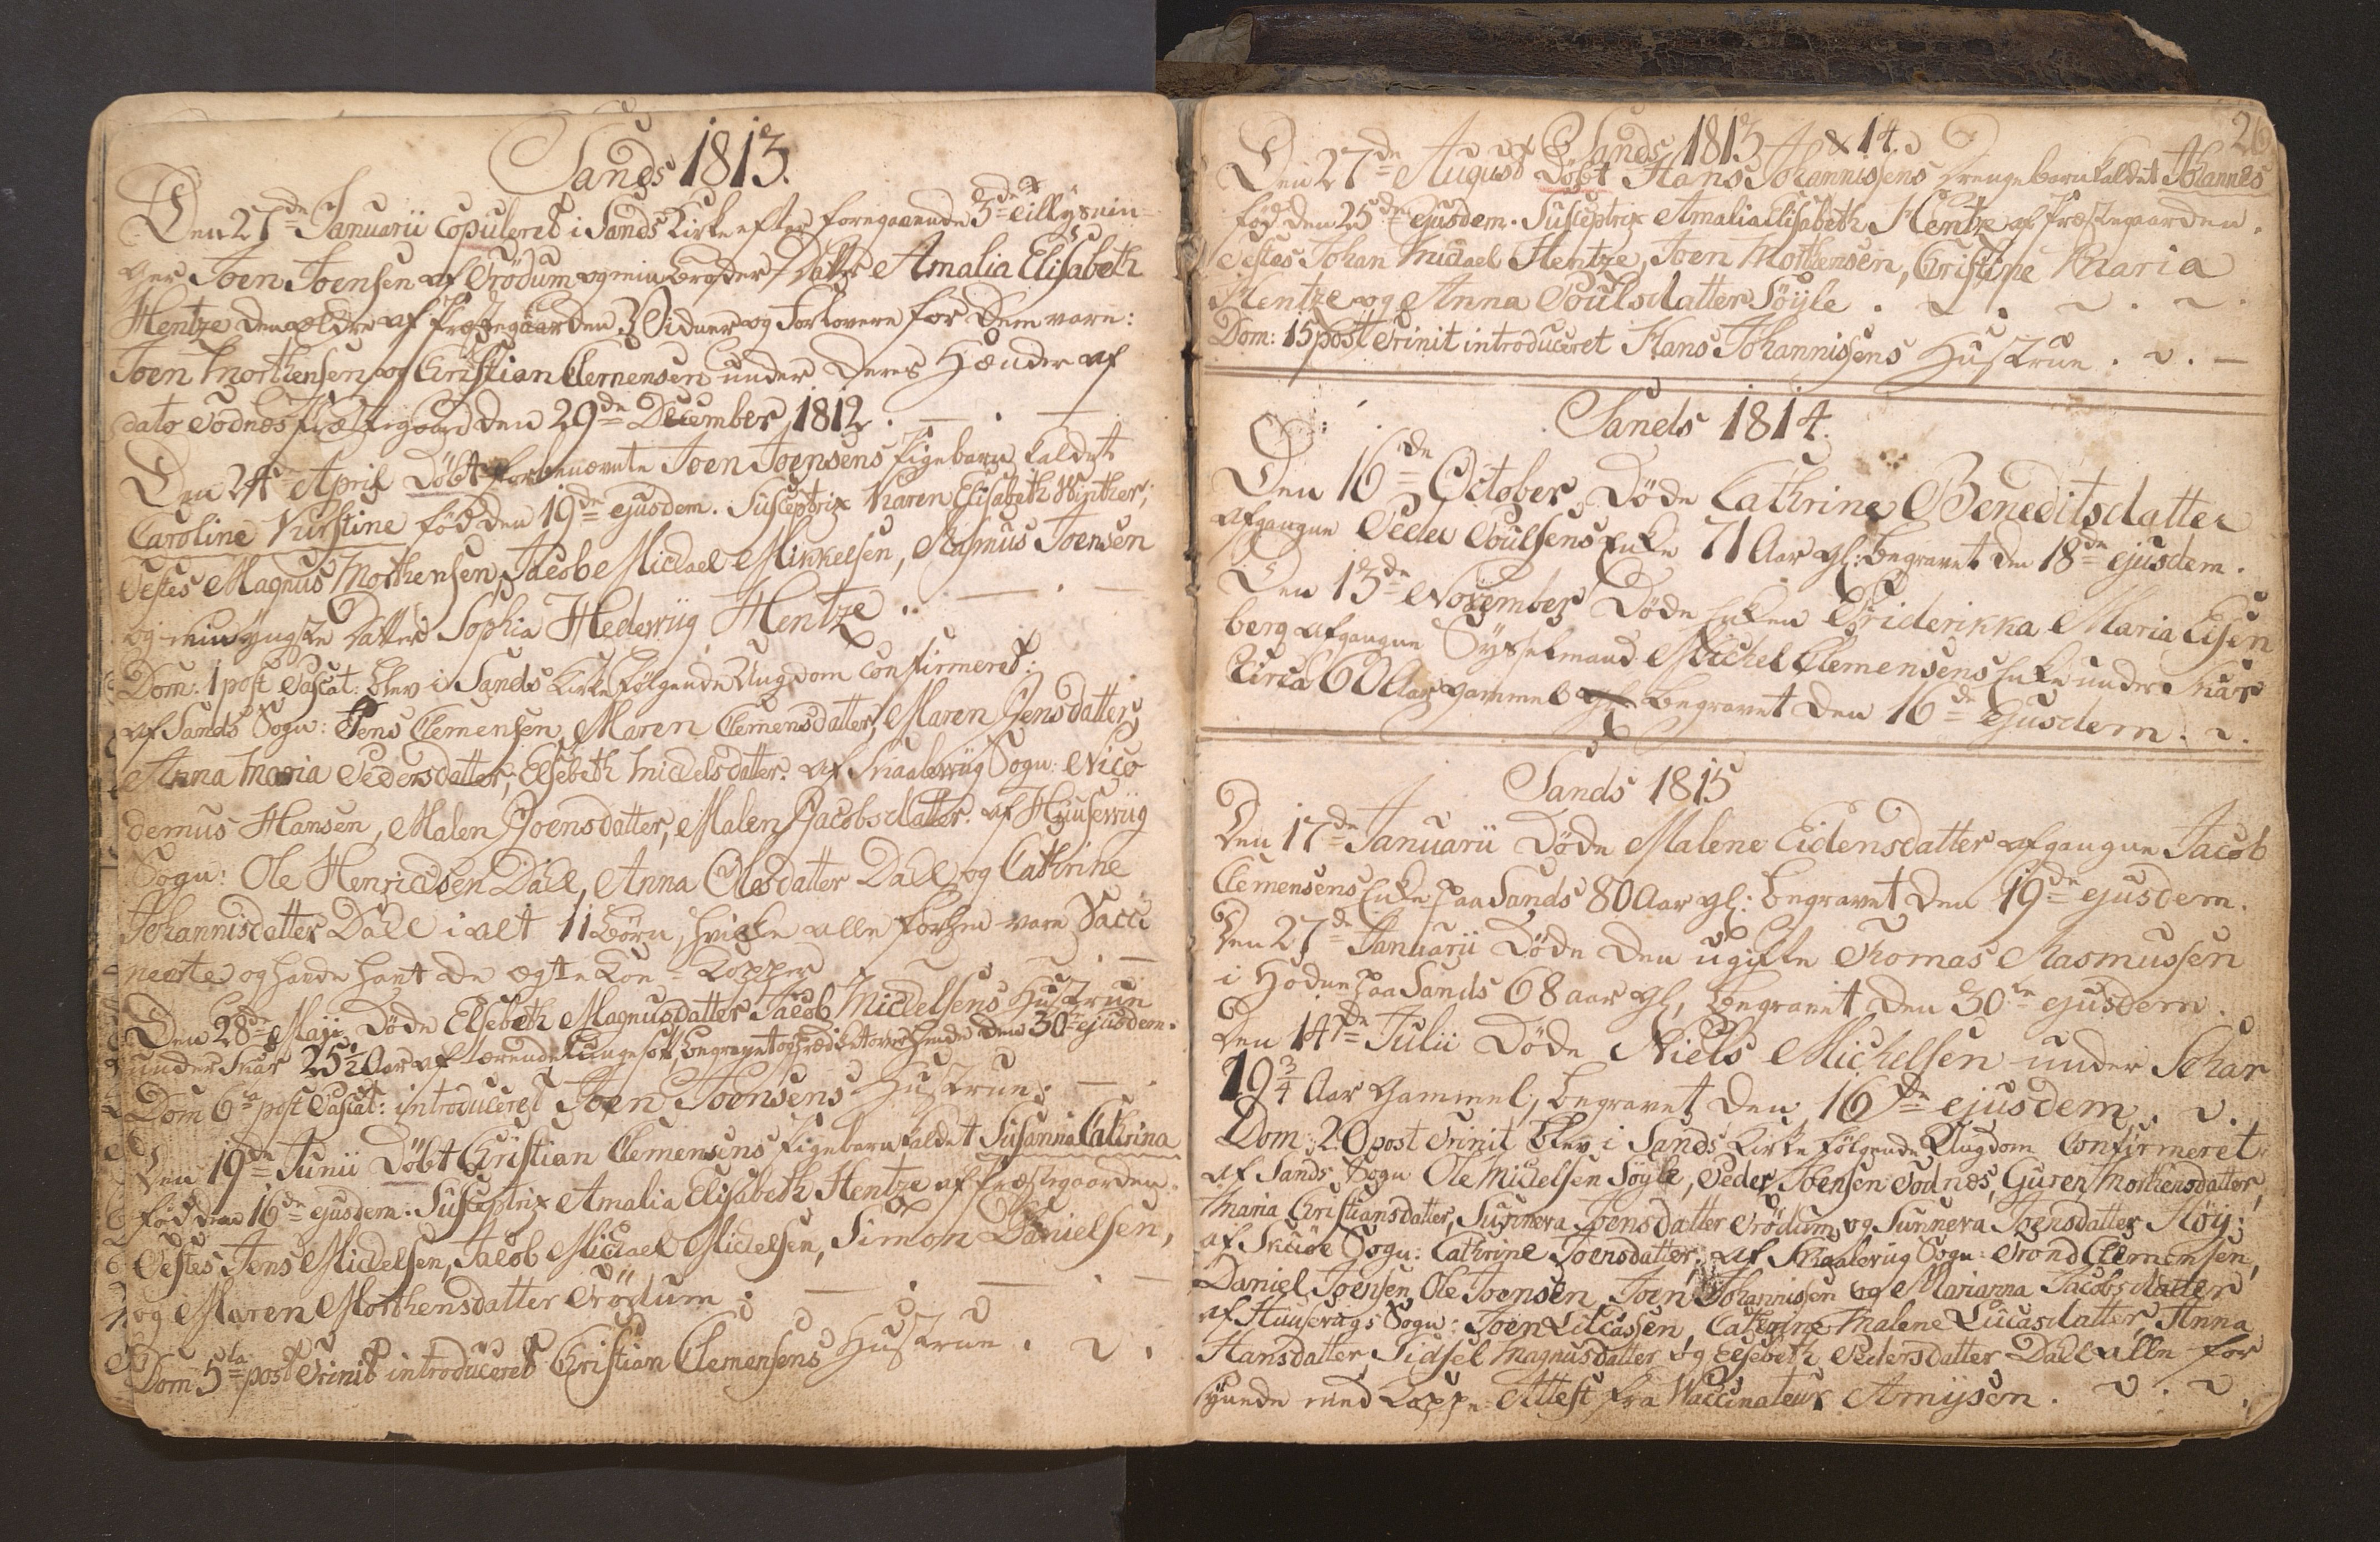 Sands 1813.
Den 27de Januarii Copuleret i Sands Kirke efter foregaaende 3de tillysnin-
ger Joen Joensen af Trödum og min Broder Datter Amalia Elisabeth
Hentze den ældre af Præstegaarden Vidner og Forlovere for Dem vare:
Joen Morthensen og Christian Clemensen under Deres Hænder af
dato Todnæs Præstegaard den 29de December 1812.
Den 24de April Döbt forbenævnte Joen Joensens Pigebarn kaldet
Caroline Kirstine föd den 19de ejusdem. Susceptrix Karen Elisabeth Winther;
Testes Magnus Morthensen, Jacob Michael Mikkelsen, Rasmus Joensen
og min yngste Datter Sophia Hedewig Hentze.
Dom: 1 post Pascat: blev i Sands Kirke følgende Ungdom Confirmeret:
af Sands Sogn: Jens Clemensen, Maren Clemensdatter, Maren Jensdatter,
Anna Maria Pedersdatter, Elsebeth Michelsdatter. af Skaalewiig Sogn: Nico
demus Hansen, Malen Joensdatter, Malen Jacobsdatter. af Huusewiig
Sogn: Ole Henrichsen Dall, Anna Olesdatter Dall og Cathrine
Johannisdatter Dall i alt 11 Börn, hvilke alle forhen vare Vacci
neerte og havde havt de ægte Koe-Kopper
Den 28de Maji Döde Elsebeth Magnusdatter Jacob Michelsens Hustrue
under Skar 25½ Aar af tærende Lungesot, begravet og prædiket over hende den 30te ejusdem.
Dom 6ta post Pascat: introduceret Joen Joensens Hustrue.
Den 19de Junii Döbt Christian Clemensens Pigebarn kaldet Susanna Cathrina
föd den 16de ejusdem. Susceptrix Amalia Elisabeth Hentze af Præstegaarden.
Testes Jens Michelsen, Jacob Michael Michelsen, Simon Danielsen,
og Maren Morthensdatter Trödum.
Dom 5ta post Trinit introduceret Christian Clemensens Hustrue.
Sands 1813 & 14.
26
Den 27de August Döbt Hans Johannissens Drengebarn kaldet Johannes
föd den 25de ejusdem. Susceptrix Amalia Elisabeth Hentze af Præstegaarden.
Testes Johan Michael Hentze, Joen Morthensen, Christine Maria
Hentze og Anna Poulsdatter Söyle.
Dom: 15 post Trinit introduceret Hans Johannissens Hustrue.
Sands 1814.
Den 16de October Döde Cathrine Beneditsdatter
afgangne Peder Poulsens Enke 71 Aar gl: begravet den 18de ejusdem.
Den 13de November Döde Enken Friderikka Maria Eisen
berg afgangne Sysselmand Michel Clemensens Enke under Skar
Circa 60 Aar gammel begravet den 16de Ejusdem.
Sands 1815
Den 17de Januarii Döde Malene Eidensdatter afgangne Jacob
Clemensens Enke paa Sands 80 Aar gl: begravet den 19de ejusdem.
Den 27de Januarii Döde den ugifte Thomas Rasmussen
i Hodne paa Sands 68 aar gl, begravet den 30te ejusdem.
Den 14de Julii Döde Niels Michelsen under Schar
19¾ Aar gammel, begravet den 16de ejusdem.
Dom: 20 post Trinit blev i Sands Kirke følgende Ungdom Confirmeret
af Sands Sogn Ole Michelsen Söyle, Peder Joensen Todnæs, Guren Morthensdatter,
Maria Christiansdatter, Sunneva Joensdatter Trödum og Sunneva Joensdatter Höy:
af Skuöe Sogn: Cathrine Joensdatter; af Skaalevug Sogn: Trond Clemensen,
Daniel Joensen, Ole Joensen, Joen Johannissen og Marianna Jacobsdatter
af Huusevigs Sogn: Joen Lucassen, Cathrine Malene Lucasdatter, Anna
Hansdatter, Sidsel Magnusdatter og Elsebeth Pedersdatter Dall alle for
synede med Koppe Attest fra Waccinateur Arnysen.